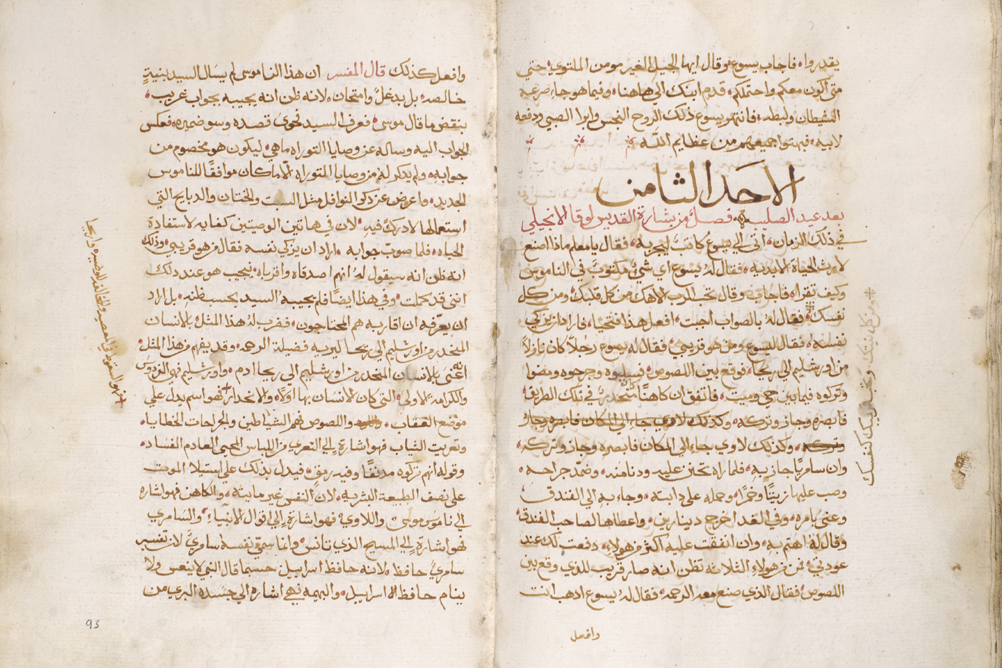 يقدروا فاجاب يسوع وقال ايها الجيل الغير مومن الملتوي حتي
متي اكون معكم واحتملكم قدم ابنك الي هاهنا وفيما هو جاء صرعه
الشيطان ولبطه فانتهر يسوع ذلك الروح النجس وابرا الصبي ودفعه
لابيه فبهتوا جميعهم من عظايم الله
الاحد الثامن
بعد عيد الصليب فصل من بشارة القديس لوقا الانجيلي
في ذلك الزمان اتي الي يسوع كاتب ليجربه فقال يا معلم ماذا اصنع
لارث الحياة الابدية فقال له يسوع اي شي مكتوب في الناموس
وكيف تقراء فاجاب وقال تحب الرب الاهك من كل قلبك ومن كل
نفسك فقال له بالصواب اجبت افعل هذا فتحيا فاراد يزكي
نفسه فقال ليسوع من هو قريبي فقال له يسوع رجلا كان نازلا
من اورشليم الي ريحا فوقع بين اللصوص وجرحوه ومضوا
وتركوه فيما بين حي وميت فاتفق ان كاهنا منحدر في تلك الطريق
فابصره وجاز وتركه وكذلك لاوي جاء الي المكان فابصره وجاز
وتركه وكذلك لاوي جاء الي المكان فابصره وجاز وتركه
وان سامريا جاز به فلما راه تحنن عليه ودنا منه وضمد جراحه
وصب عليها زيتا وخمرا وحمله علي دابته وجاء به الي الفندق
وعني بامره وفي الغد اخرج دينارين واعطاها لصاحب الفندق
وقال له اهتم به وان انفقت عليه اكثر من هولاء دفعت لك عند
عودتي فمن من هولاء الثلاثة تظن انه صار قريب للذي وقع بين
اللصوص فقال الذي صنع معه الرحمه فقال له يسوع اذهب انت
وافعل
وافعل كذلك قال المفسر ان هذا الناموسي لم يسال السيد بنية
خالصه بل بدغل وامتحان لانه ظن انه يجيبه بجواب غريب
ينقض ما قال موسي فعرف السيد نحوي قصده وسو ضميره فعكس
الجواب اليه وساله عن وصايا التوراه ما هي ليكون هو مخصوم من
جوابه ولم يذكر له من وصايا التوراه الا ما كان موافقا للناموس
الجديد واعرض عن ذكر النوافل مثل السبت والختان والذبايح التي
استعمالها لا درك فيه لان في هاتين الوصيتين كفايه لاستفادة
الحياه فلما صوب جوابه اراد ان يزكي نفسه فقال من هو قريبي وذلك
انه ظن انه سيقول له انهم اصدقاه واقرباه فيجيب هو عند ذلك
انني قد كملت وفي هذا ايضا فلم يجيبه السيد بحسب ظنه بل اراد
ان يعرفه ان اقاربه هم المحتاجون فضرب له هذا المثل بالانسان
المنحدر من اورشليم الي ريحا ليريه فضيلة الرحمه وقد يفهم من هذا المثل
انه عني بالانسان المنحدر من اورشليم الي ريحا ادم واورشليم فهي الفردوس
والكرامه الاولي التي كان الانسان بها اولا والانحدار فهو اسم يدل علي
موضع العقاب واللصوص فهم الشياطين والجراحات الخطايا
وتعريت الثياب فهو اشارة الي التعري من اللباس المجي العادم الفساد
وقوله انهم تركوه ملقا وفيه رمق فيدل بذلك علي استيلا الموت
علي نصف الطبيعة البشريه لان النفس غير مايته والكاهن فهو اشارة
الي ناموس موسي واللاوي فهو اشارة الي اقوال الانبياء والسامري
فهو اشارة الي المسيح الذي تانس وانما سمي نفسه سامري لان تفسير
سامري حافظ لانه حافظ اسراييل حسبما قال النبي لا ينعس ولا
ينام حافظ اسراييل والبهيمه فهي اشارة الي جسده البري من
93